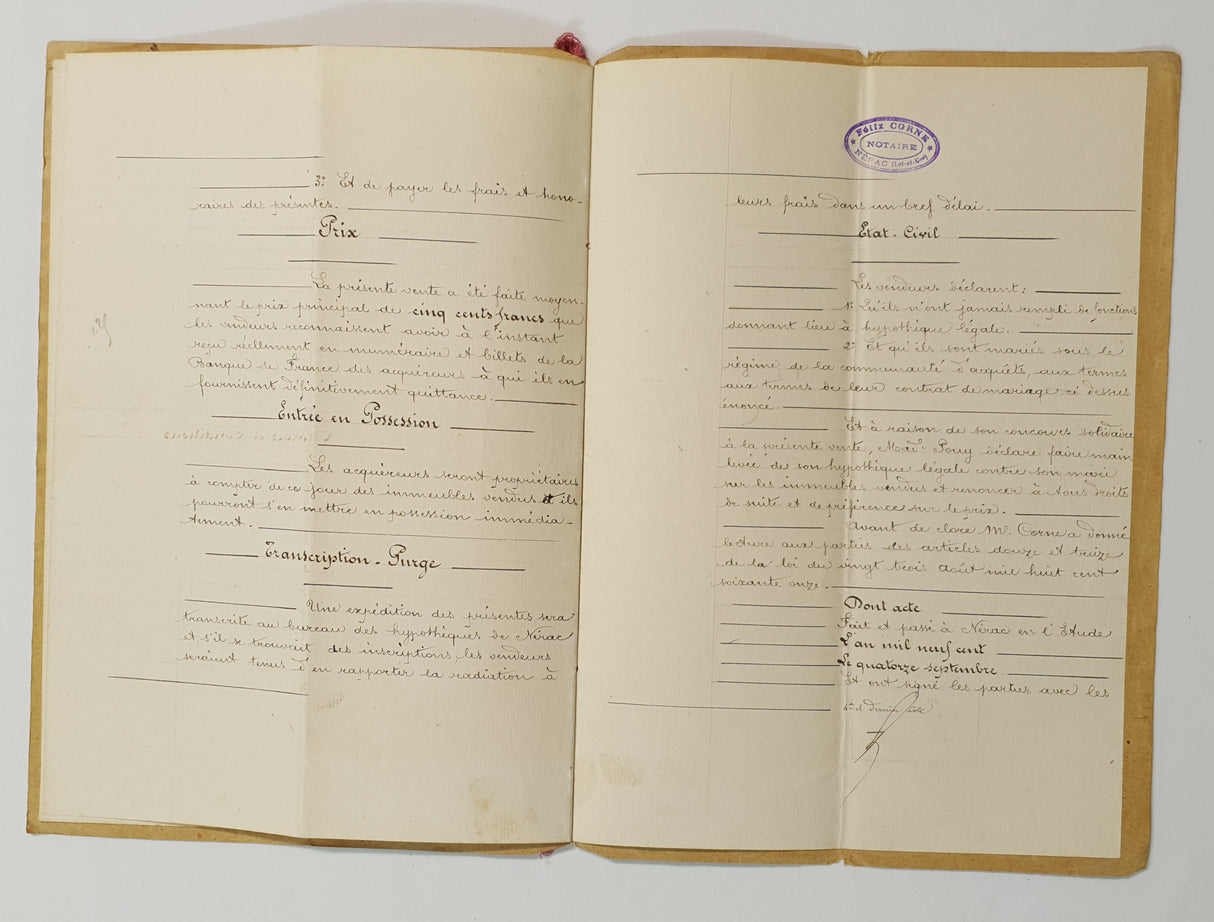 3° Et de payer les frais et hono-
raires des présentes.
Prix
La présente vente a été faite moyen-
nant le prix principal de cinq cents francs que
les vendeurs reconnaissent avoir à l'instant
reçu réellement en numéraire et billets de la
Banque de France des acquéreurs à qui ils en
fournissent définitivement quittance.
Entrée en Possession
Les acquéreurs seront propriétaires
à compter de ce jour des immeubles vendus et ils
pourront s'en mettre en possession immédia-
tement.
Transcription - Purge
Une expédition des présentes sera
transcrite au bureau des hypothèques de Nérac
et s'il se trouvait des inscriptions, les vendeurs
seraient tenus d'en rapporter la radiation à
Félix CORNE
NOTAIRE
NÉRAC (Lot-et-Gar.)
leurs frais dans un bref délai.
Etat-Civil
Les vendeurs déclarent:
1° Qu'ils n'ont jamais rempli de fonctions
donnant lieu à hypothèque légale.
2° Et qu'ils sont mariés sous le
régime de la communauté d'acquêts, aux termes
aux termes de leur contrat de mariage ci-dessus
énoncé.
Et à raison de son concours solidaire
à la présente vente, Mad.e Pouy déclare faire main
levée de son hypothèque légale contre son mari
sur les immeubles vendus et renoncer à tous droits
de suite et de préférence sur le prix.
Avant de clore Me Corne a donné
lecture aux parties des articles douze et treize
de la loi du vingt trois août mil huit cent
soixante onze.
Dont acte
Fait et passé à Nérac en l'Etude
L'an mil neuf cent
Le quatorze septembre
Et ont signé les parties avec les
4me et dernier rôle